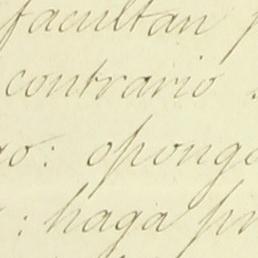 facultan
contrario
oponga
haga